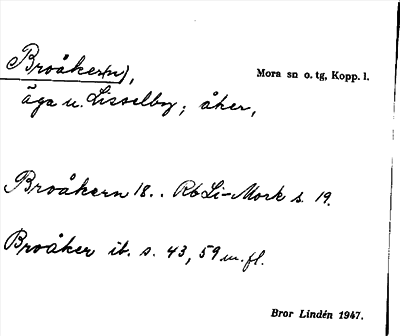 Broåker(n),
Mora sn o. tg, Kopp. l.
äga u. Lisselby; åker,
Broåkern 18.. RbLi-Mork s. 19.
Broåker ib. s. 43, 59 m.fl.
Bror Lindén 1947.